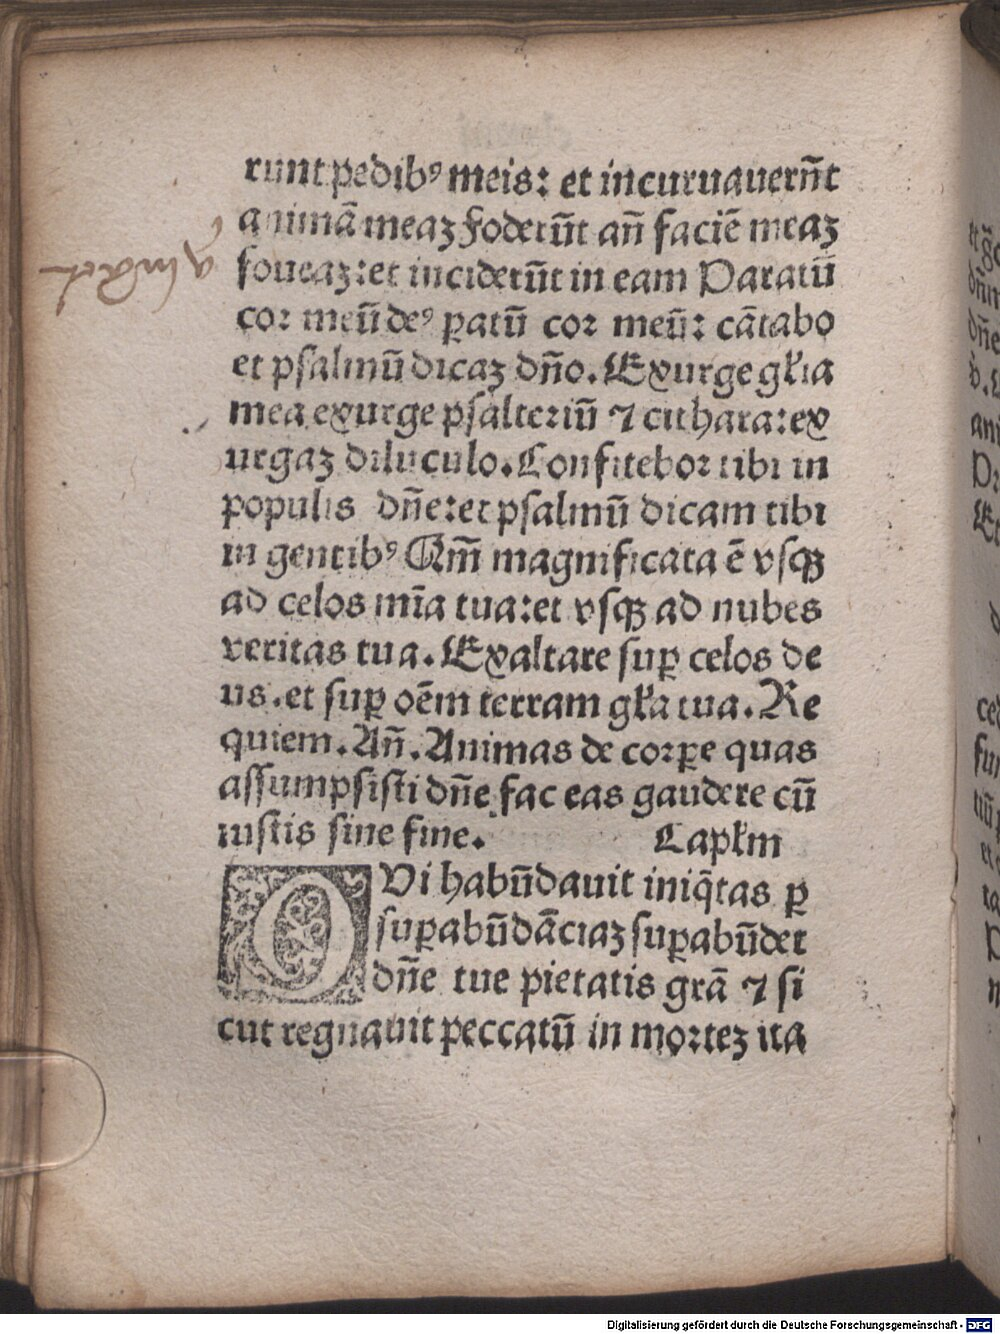 runt pedibꝰ meis: et incuruauerñt
animã meaꝫ Foderũt añ faciẽ meaꝫ
foueaꝫ: et inciderũt in eam Paratũ
cor meũ deꝰ ꝑatũ cor meũ: cãtabo
et psalmũ dicaꝫ dño. Exurge gl̃ia
mea exurge psalteriũ ⁊ cithara: ex
urgaꝫ diluculo. Confitebor tibi in
populis dñe: et psalmũ dicam tibi
in gentibꝰ Qm̃ magnificata ẽ vsqꝫ
ad celos mĩa tua: et vsqꝫ ad nubes
veritas tua. Exaltare suꝑ celos de
us. et suꝑ oẽm terram gl̃a tua. Re
quiem. Añ. Animas de corꝑe quas
assumpsisti dñe fac eas gaudere cũ
iustis sine fine. Capl̃m
QVi habũdauit iniq̃tas ꝑ
suꝑabũdãciaꝫ suꝑabũdet
dñe tue pietatis grã ⁊ si
cut regnauit peccatũ in morteꝫ ita
Digitalisierung gefördert durch die Deutsche Forschungsgemeinschaft - DFG